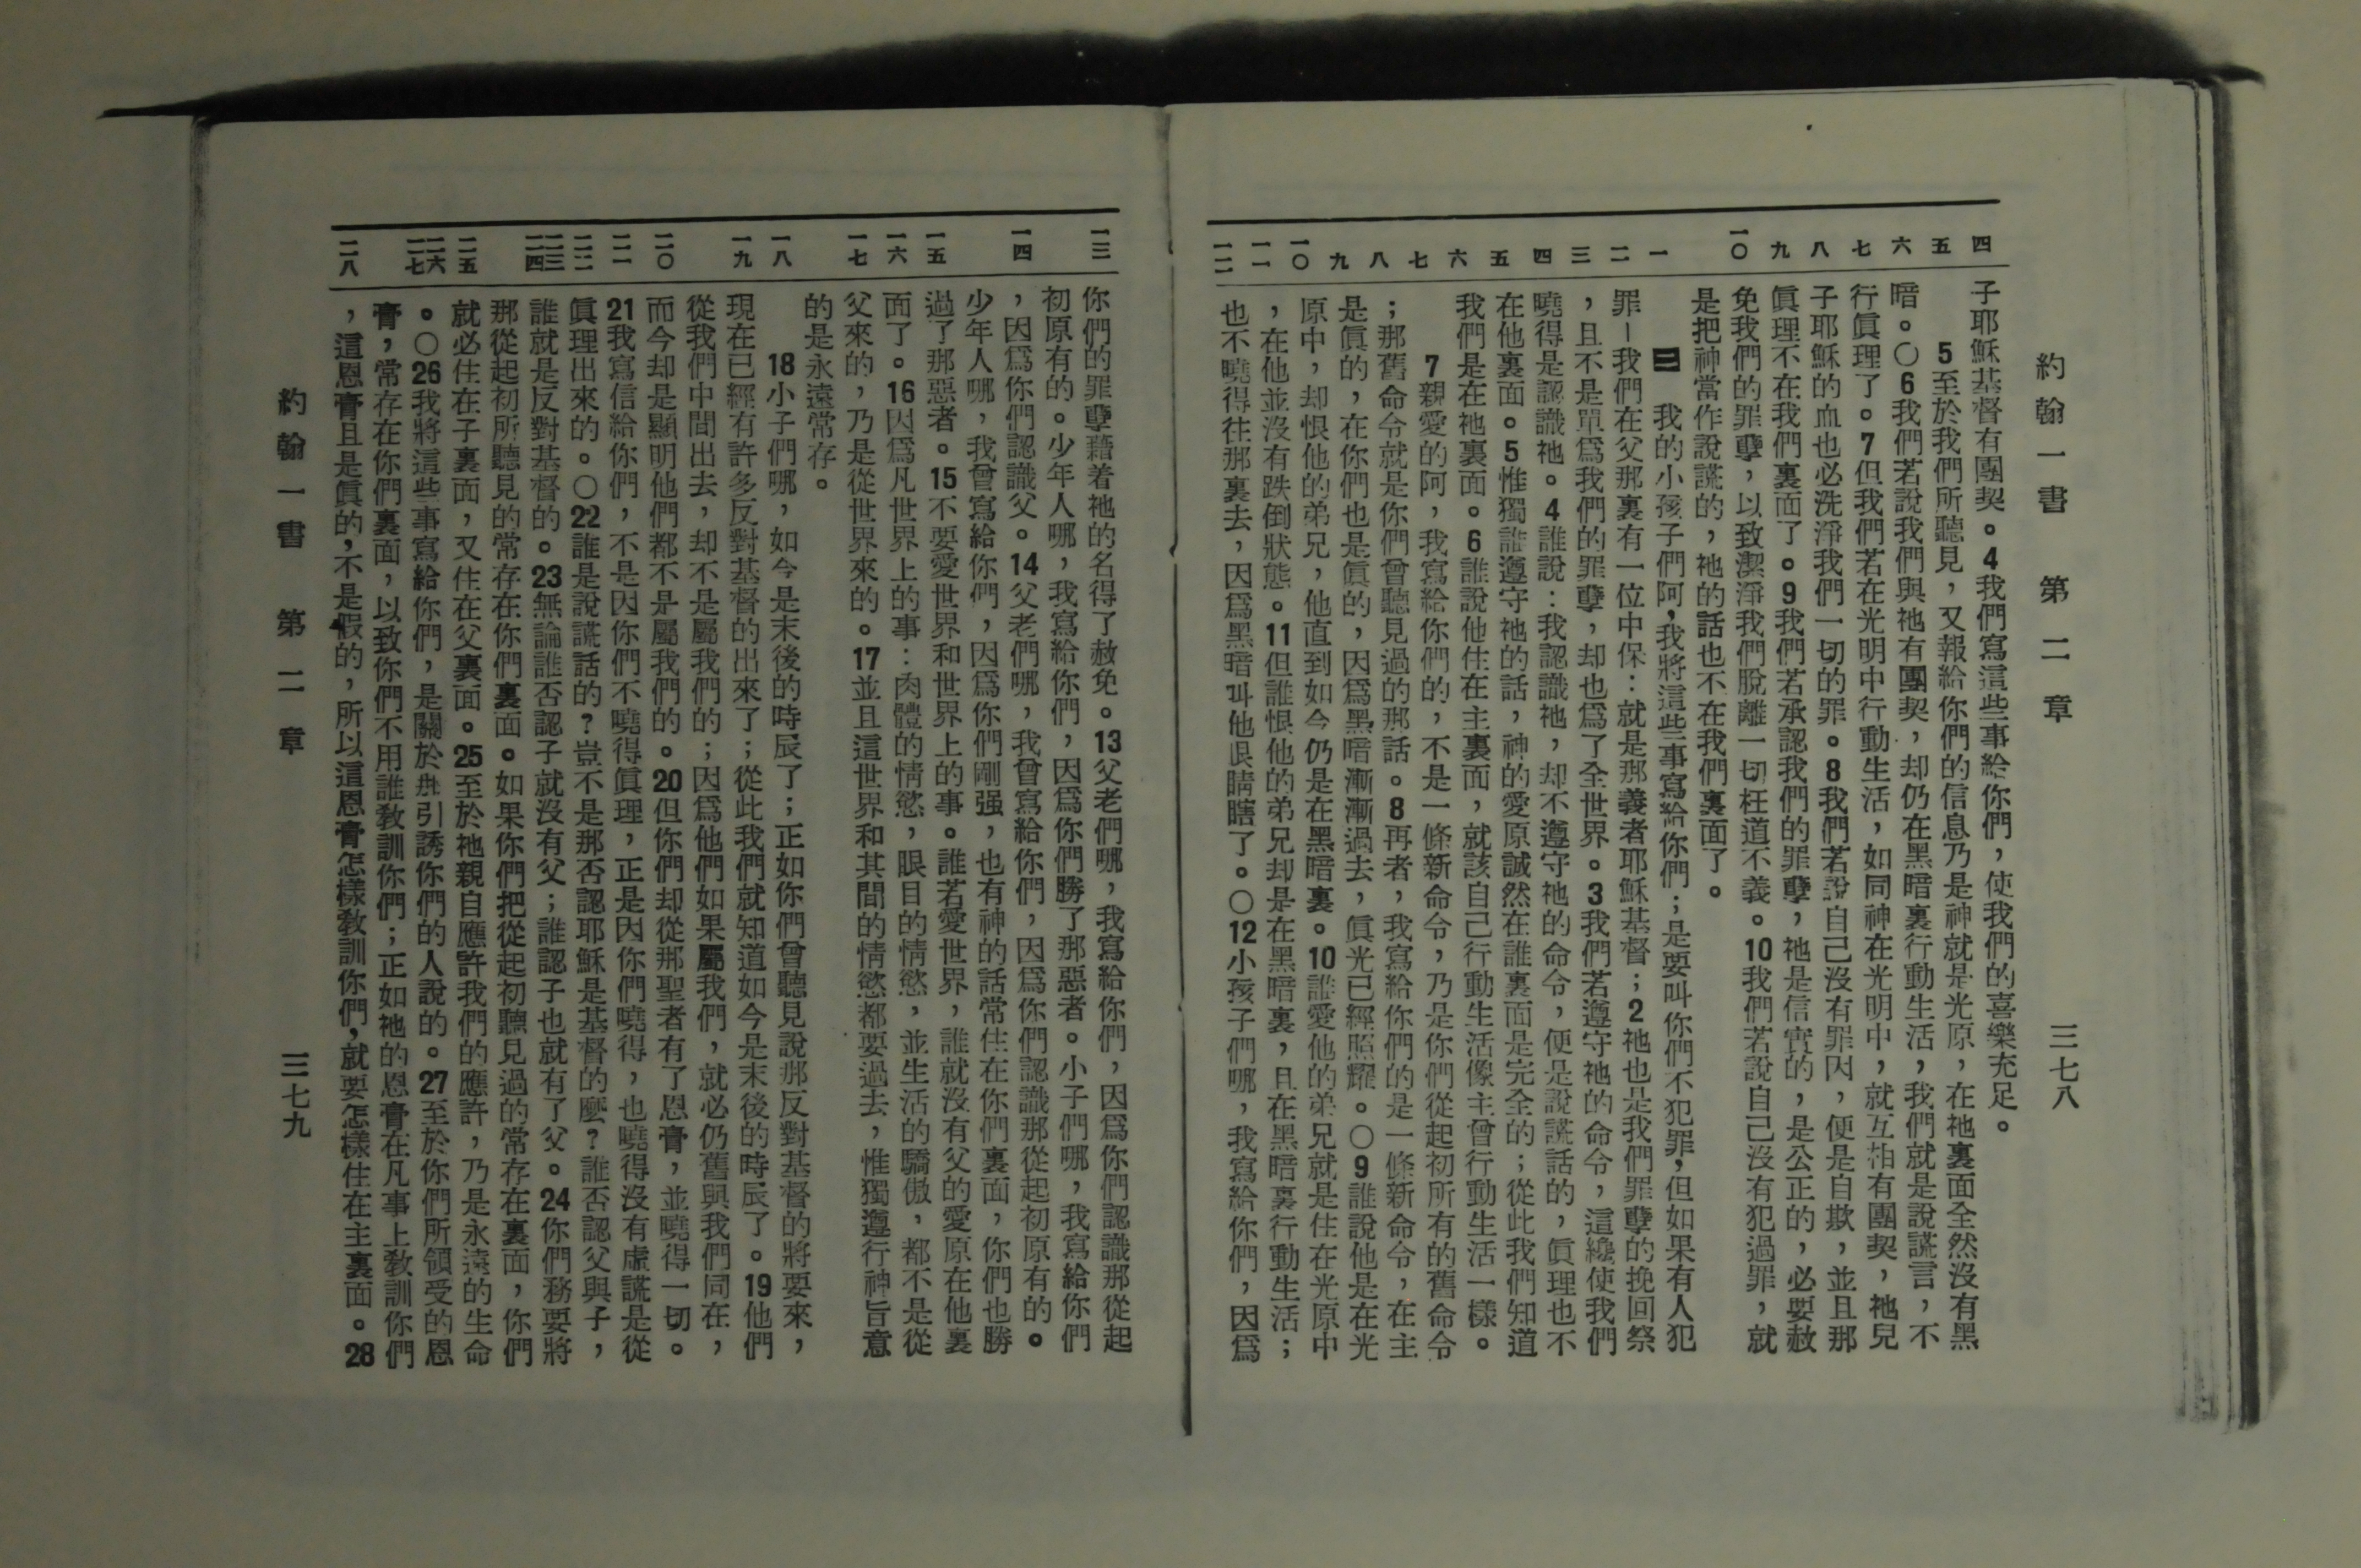 約翰一書 第二章 三七八
四 五 六 七 八 九 一〇 一 二 三 四 五 六 七 八 九 一〇 一一 一二
子耶穌基督有團契。4我們寫這些事給你們，使我們的喜樂充足。
5至於我們所聽見，又報給你們的信息乃是神就是光原，在祂裏面全然沒有黑
暗。〇6我們若說我們與祂有團契，却仍在黑暗裏行動生活，我們就是說謊言，不
行眞理了。7但我們若在光明中行動生活，如同神在光明中，就互相有團契，祂兒
子耶穌的血也必洗淨我們一切的罪。8我們若說自己沒有罪因，便是自欺，並且那
眞理不在我們裏面了。9我們若承認我們的罪孽，祂是信實的，是公正的，必要赦
免我們的罪孽，以致潔淨我們脫離一切枉道不義。10我們若說自己沒有犯過罪，就
是把神當作說謊的，祂的話也不在我們裏面了。
二 我的小孩子們阿，我將這些事寫給你們；是要叫你們不犯罪，但如果有人犯
罪－我們在父那裏有一位中保：就是那義者耶穌基督；2祂也是我們罪孽的挽回祭
，且不是單爲我們的罪孽，却也爲了全世界。3我們若遵守祂的命令，這纔使我們
曉得是認識祂。4誰說：我認識祂，却不遵守祂的命令，便是說謊話的，眞理也不
在他裏面。5惟獨誰遵守祂的話，神的愛原誠然在誰裏面是完全的；從此我們知道
我們是在祂裏面。6誰說他住在主裏面，就該自己行動生活像主曾行動生活一樣。
7親愛的阿，我寫給你們的，不是一條新命令，乃是你們從起初所有的舊命令
；那舊命令就是你們曾聽見過的那話。8再者，我寫給你們的是一條新命令，在主
是眞的，在你們也是眞的，因爲黑暗漸漸過去，眞光已經照耀。〇9誰說他是在光
原中，却恨他的弟兄，他直到如今仍是在黑暗裏。10誰愛他的弟兄就是住在光原中
，在他並沒有跌倒狀態。11但誰恨他的弟兄却是在黑暗裏，且在黑暗裏行動生活；
也不曉得往那裏去，因爲黑暗叫他眼睛瞎了。〇12小孩子們哪，我寫給你們，因爲
一三 一四 一五 一六 一七 一八 一九 二〇 二一 二二 二三 二四 二五 二六 二七 二八
你們的罪孽藉着祂的名得了赦免。13父老們哪，我寫給你們，因爲你們認識那從起
初原有的。少年人哪，我寫給你們，因爲你們勝了那惡者。小子們哪，我寫給你們
，因爲你們認識父。14父老們哪，我曾寫給你們，因爲你們認識那從起初原有的。
少年人哪，我曾寫給你們，因爲你們剛强，也有神的話常住在你們裏面，你們也勝
過了那惡者。15不要愛世界和世界上的事。誰若愛世界，誰就沒有父的愛原在他裏
面了。16因爲凡世界上的事：肉體的情慾，眼目的情慾，並生活的驕傲，都不是從
父來的，乃是從世界來的。17並且這世界和其間的情慾都要過去，惟獨遵行神旨意
的是永遠常存。
18小子們哪，如今是末後的時辰了；正如你們曾聽見說那反對基督的將要來，
現在已經有許多反對基督的出來了；從此我們就知道如今是末後的時辰了。19他們
從我們中間出去，却不是屬我們的；因爲他們如果屬我們，就必仍舊與我們同在，
而今却是顯明他們都不是屬我們的。20但你們却從那聖者有了恩膏，並曉得一切。
21我寫信給你們，不是因你們不曉得眞理，正是因你們曉得，也曉得沒有虛謊是從
眞理出來的。〇22誰是說謊話的？豈不是那否認耶穌是基督的麼？誰否認父與子，
誰就是反對基督的。23無論誰否認子就沒有父；誰認子也就有了父。24你們務要將
那從起初所聽見的常存在你們裏面。如果你們把從起初聽見過的常存在裏面，你們
就必住在子裏面，又住在父裏面。25至於祂親自應許我們的應許，乃是永遠的生命
。〇26我將這些事寫給你們，是關於那引誘你們的人說的。27至於你們所領受的恩
膏，常存在你們裏面，以致你們不用誰教訓你們；正如祂的恩膏在凡事上教訓你們
，這恩膏且是眞的，不是假的，所以這恩膏怎樣教訓你們，就要怎樣住在主裏面。28
約翰一書 第二章 三七九